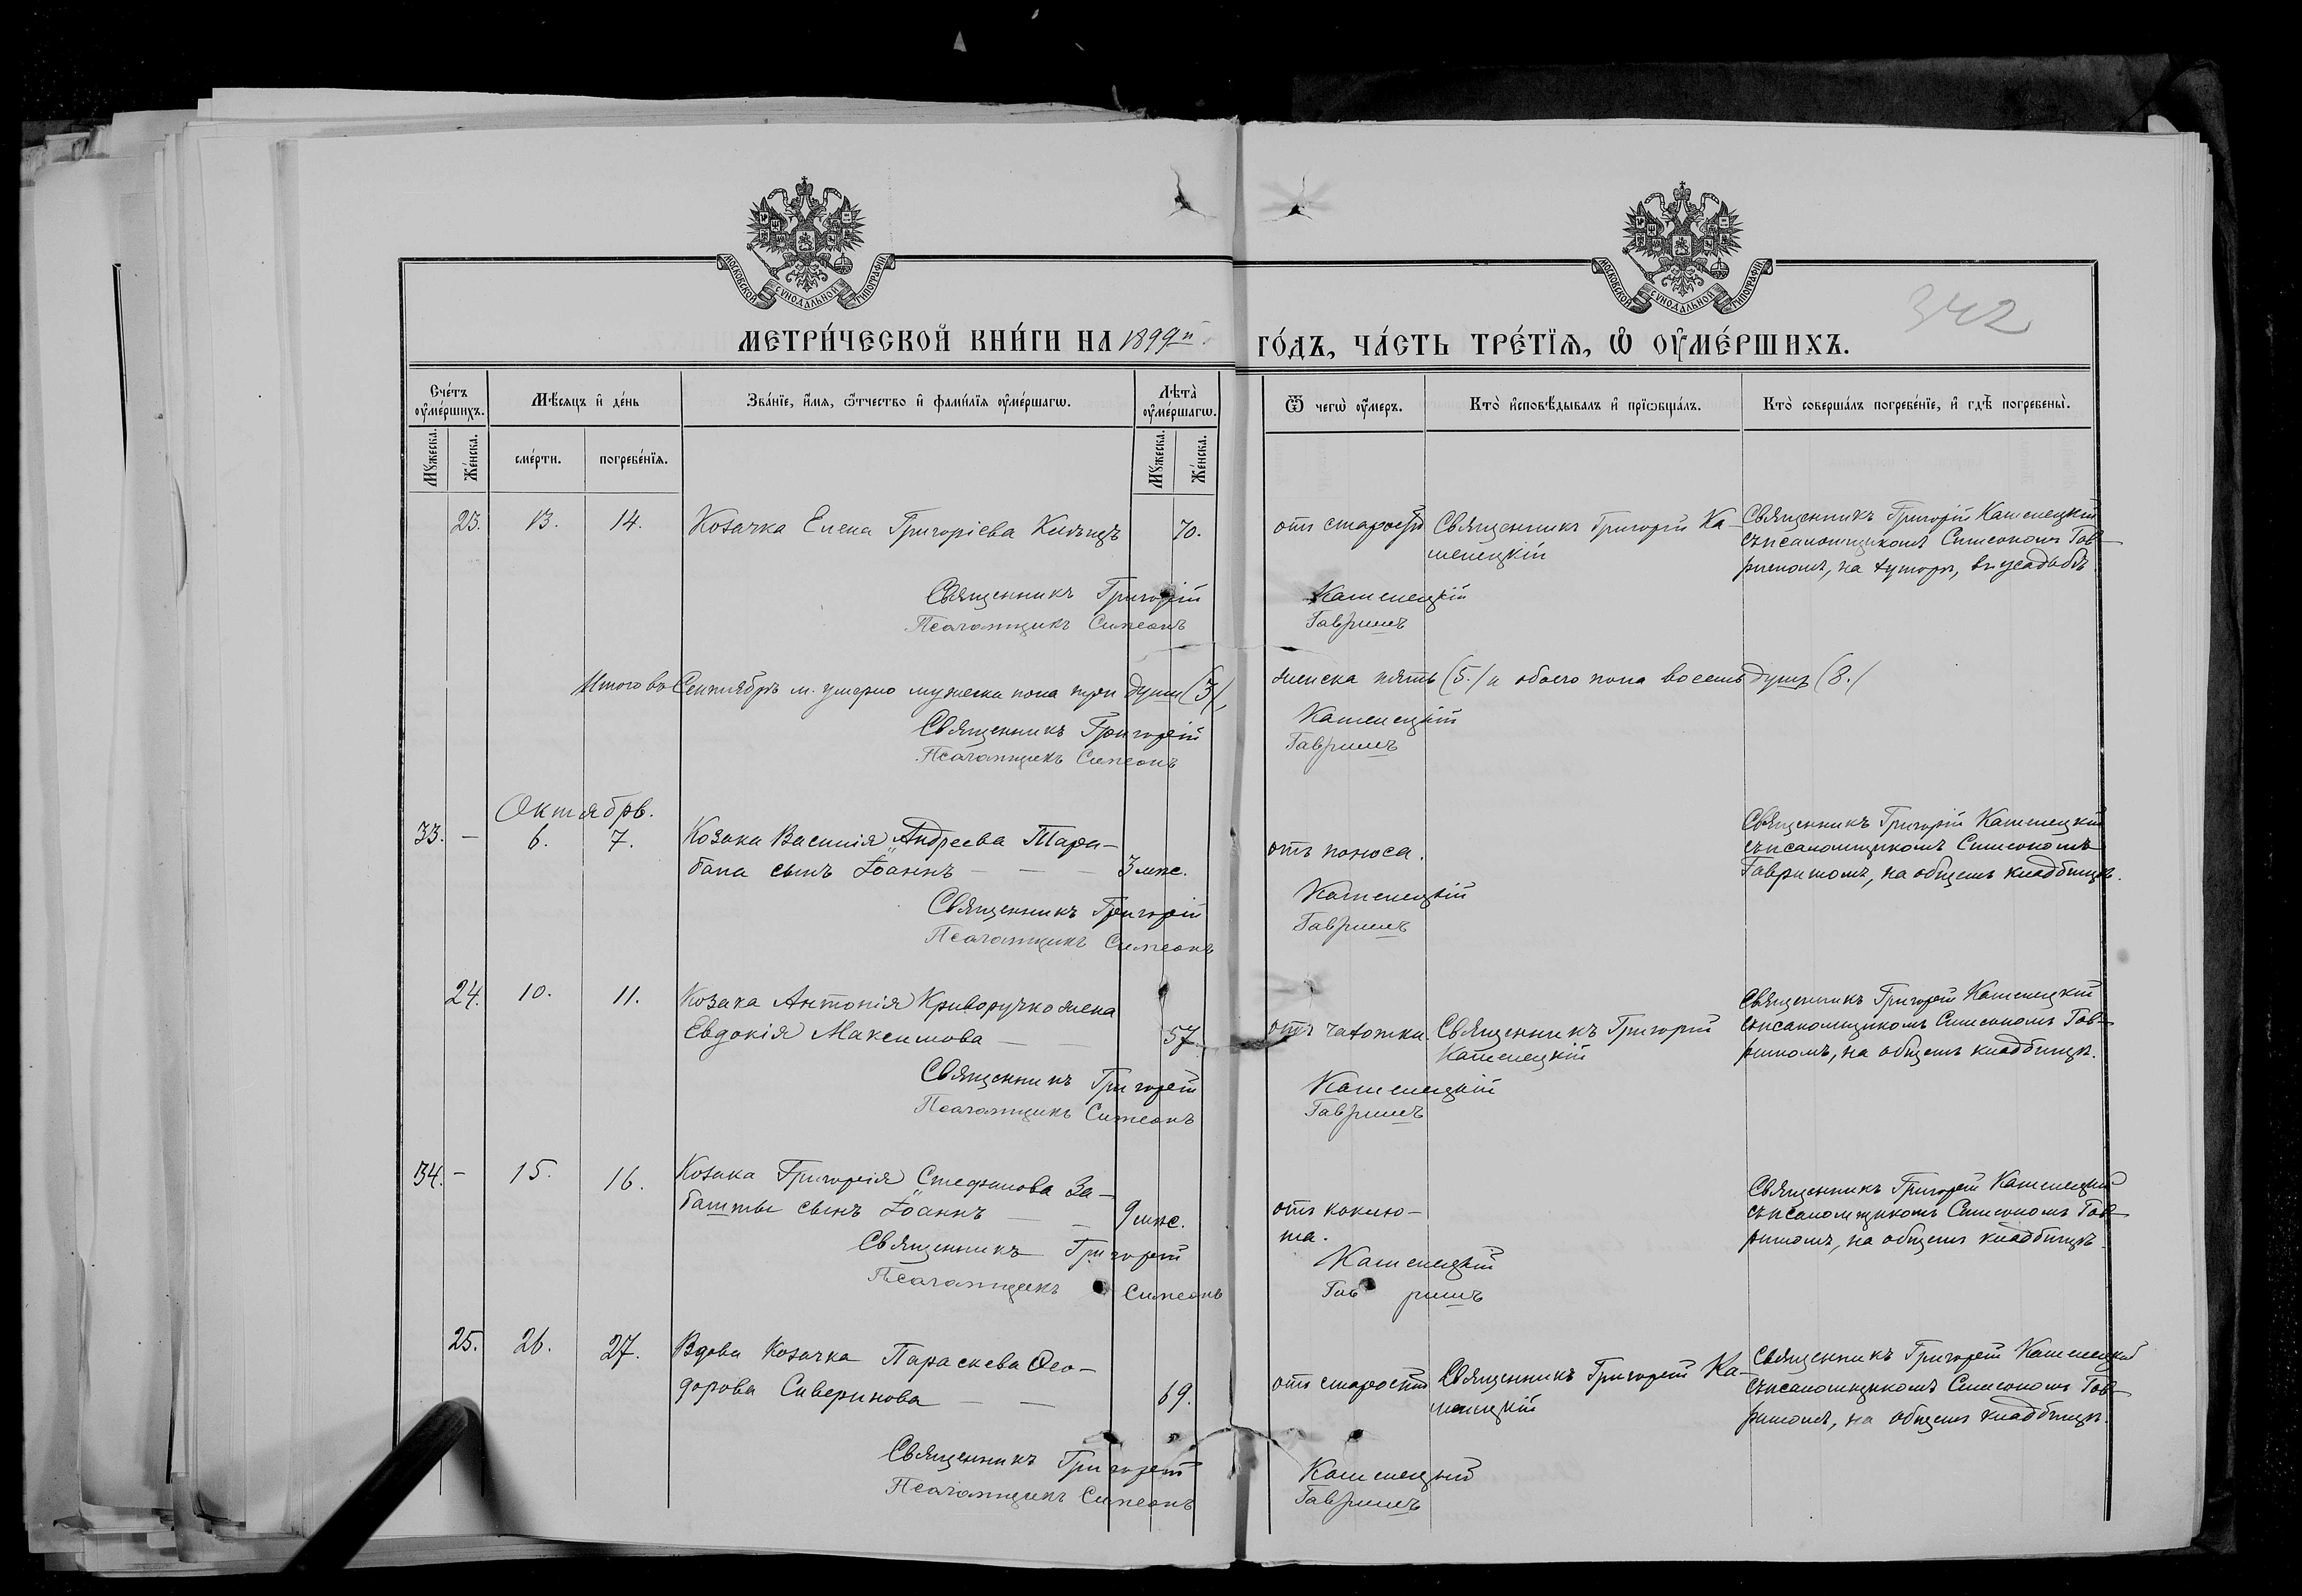 МОСКОВСКОЙ СѴНОДАЛЬНОЙ ТИПОГРАФІИ
МОСКОВСКОЙ СѴНОДАЛЬНОЙ ТИПОГРАФІИ
342
МЕТРИ́ЧЕСКОЙ КНИ́ГИ НА 1899й
ГО́ДЪ, ЧА́СТЬ ТРЕ́ТЇѦ, Ѡ҆ ОУ҆МЕ́РШИХЪ.
Сче́тъ оу҆ме́ршихъ.
Мѣ́сяцъ и҆ де́нь
Зва́нїе, и҆́мѧ, ѻ҆́тчество и҆ фами́лїѧ оу҆ме́ршагѡ.
Лѣ́та оу҆ме́ршагѡ.
Ѿ чегѡ̀ оу҆́меръ.
Кто̀ и҆сповѣ́дывалъ и҆ прїѡбща́лъ.
Кто̀ соверша́лъ погребе́нїе, и҆ гдѣ̀ погребены̀.
Мꙋ́жеска.
Же́нска.
сме́рти.
погребе́нїѧ.
Мꙋ́жеска.
Же́нска.
23. 13. 14. Козачка Елена Григоріева 70.
отъ старости Священникъ Григорій Ка-
менецкій
Священникъ Григорій Каменецкій
съ псаломщикомъ Симеономъ Гав-
ришомъ, на хуторѣ, въ усадьбѣ
Священникъ Григорій Каменецкій
Псаломщикъ Симеонъ Гавришъ
Итого въ Сентябрѣ м. умерло мужеска пола три души (3), женска пять (5.) и обоего пола восемь душъ (8.)
Священникъ Григорій Каменецкій
Псаломщикъ Симеонъ Гавришъ
Октябрь.
33. – 6. 7. Козака Василія Андреева Тара-
бана сынъ Іоаннъ – – – 3 мѣс.
отъ поноса.
Священникъ Григорій Каменецкій
съ псаломщикомъ Симеономъ
Гавришомъ, на общемъ кладбищѣ.
Священникъ Григорій Каменецкій
Псаломщикъ Симеонъ Гавришъ
24. 10. 11. Козака Антонія Криворучко жена
Евдокія Максимова – – 57
отъ чахотки Священникъ Григорій
Каменецкій
Священникъ Григорій Каменецкій
съ псаломщикомъ Симеономъ Гав-
ришомъ, на общемъ кладбищѣ.
Священникъ Григорій Каменецкій
Псаломщикъ Симеонъ Гавришъ
34. – 15. 16. Козака Григорія Стефанова За-
башты сынъ Іоаннъ – – 9 мѣс.
отъ коклю-
ша.
Священникъ Григорій Каменецкій
съ псаломщикомъ Симеономъ Гав-
ришомъ, на общемъ кладбищѣ.
Священникъ Григорій Каменецкій
Псаломщикъ Симеонъ Гавришъ
25. 26. 27. Вдова Козачка Параскева Ѳео-
дорова Сиверинова – – 69.
отъ старости Священникъ Григорій Ка-
менецкій
Священникъ Григорій Каменецкій
съ псаломщикомъ Симеономъ Гав-
ришомъ, на общемъ кладбищѣ.
Священникъ Григорій Каменецкій
Псаломщикъ Симеонъ Гавришъ